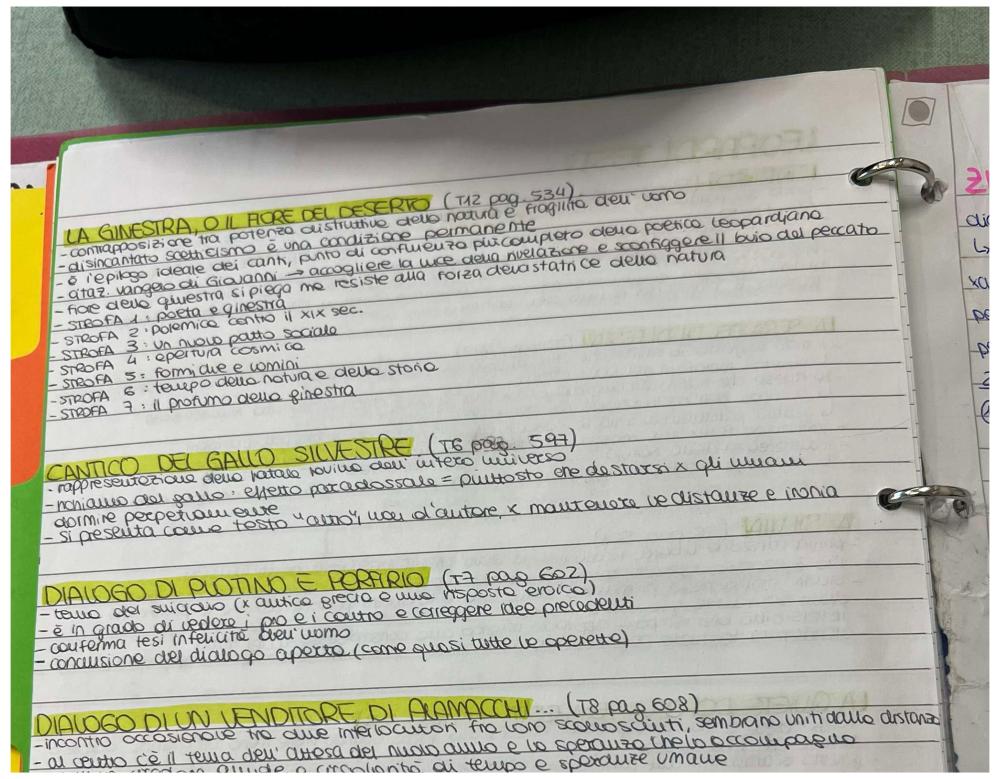 LA GINESTRA, O IL FIORE DEL DESERTO (T12 pag. 534)
- contrapposizione tra potenza distruttiva della natura e fragilità dell'uomo
- disincantato scetticismo è una condizione permanente
- è l'epilogo ideale dei canti, punto di confluenza più completo della poetica leopardiana
- citaz. vangelo di Giovanni → accogliere la luce della rivelazione e sconfiggere il buio del peccato
- fiore della ginestra si piega ma resiste alla forza devastatrice della natura
- STROFA 1: poeta e ginestra
- STROFA 2: polemica contro il XIX sec.
- STROFA 3: un nuovo patto sociale
- STROFA 4: apertura cosmica
- STROFA 5: formiche e uomini
- STROFA 6: tempo della natura e della storia
- STROFA 7: il profumo della ginestra
CANTICO DEL GALLO SILVESTRE (T6 pag. 597)
- rappresentazione della fatale rovina dell'intero universo
- richiamo del gallo: effetto paradossale = piuttosto che destarsi x gli umani
dormire perpetuamente
- si presenta come testo "altro", non d'autore, x mantenere le distanze e ironia
DIALOGO DI PLOTINO E PORFIRIO (T7 pag 602)
- tema del suicidio (x antica grecia è una risposta eroica)
- è in grado di vedere i pro e i contro e correggere idee precedenti
- conferma tesi infelicità dell'uomo
- conclusione del dialogo aperta (come quasi tutte le operette)
DIALOGO DI UN VENDITORE DI ALAMACCHI... (T8 pag 608)
- incontro occasionale tra due interlocutori fra loro sconosciuti, sembrano uniti dalla distanza
- al centro c'è il tema dell'attesa del nuovo anno e la speranza che lo accompagna
allude a circolarità di tempo e speranze umane